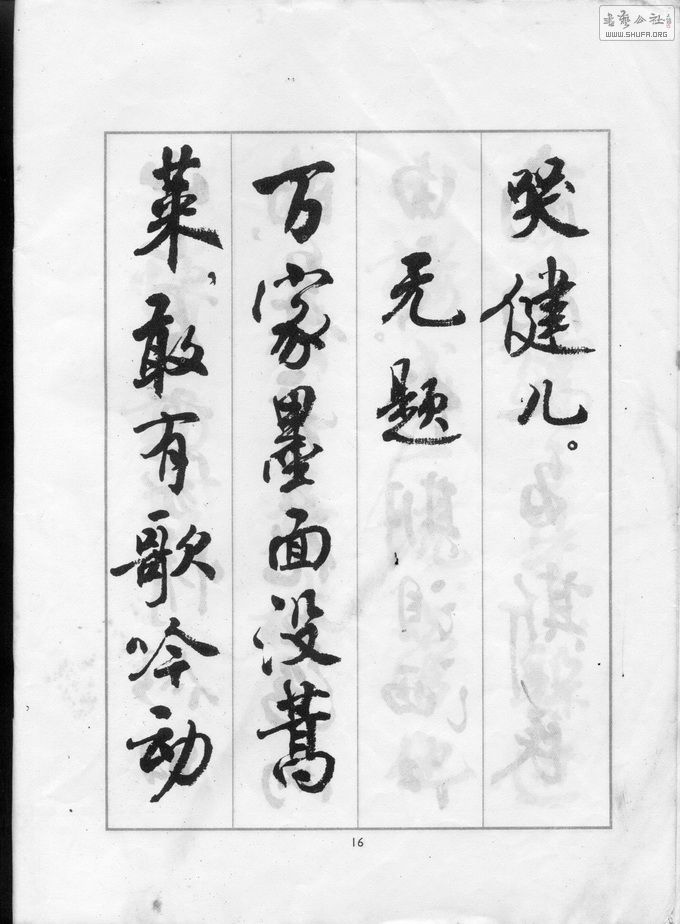 哭健儿。
无题
万家墨面没蒿
莱，敢有歌吟动
16
书艺公社
WWW.SHUFA.ORG